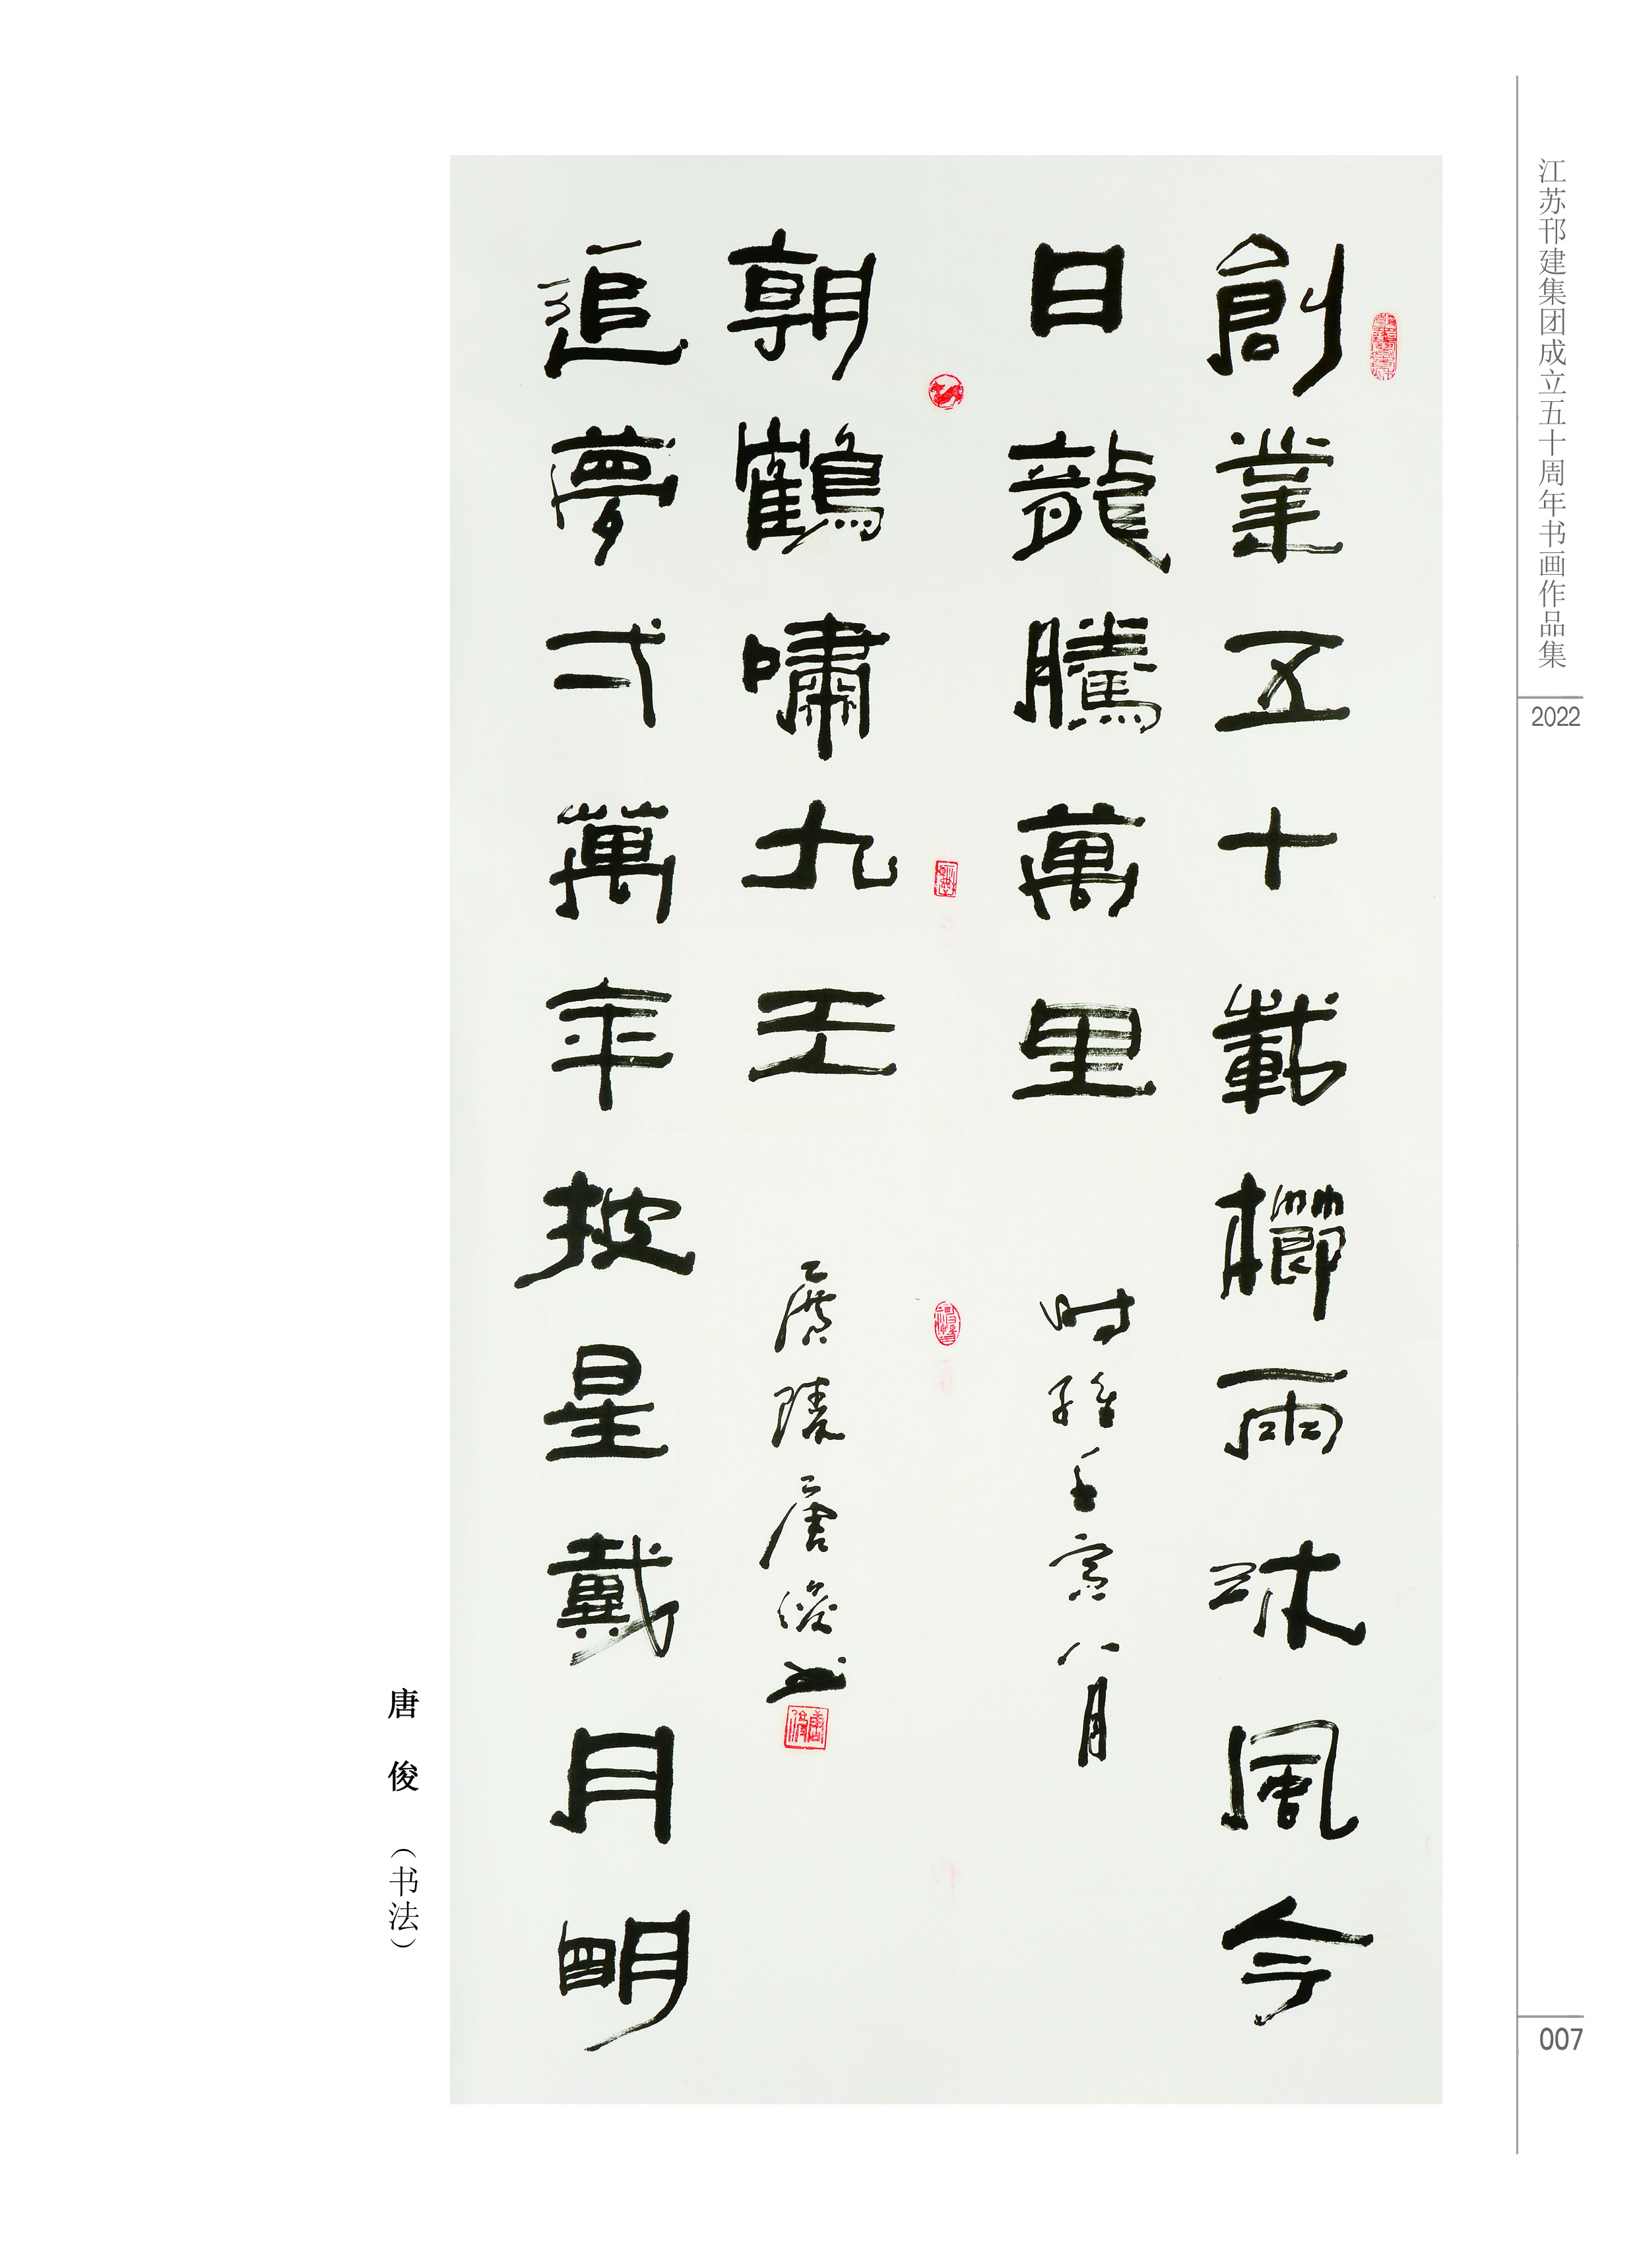 江苏邗建集团成立五十周年书画作品集
2022
創業五十載櫛雨沐風今
日龍騰萬里
時維壬寅八月
追夢弌萬年披星戴月明
朝鶴嘯九天
廣陵唐俊書
唐俊
唐俊（书法）
007